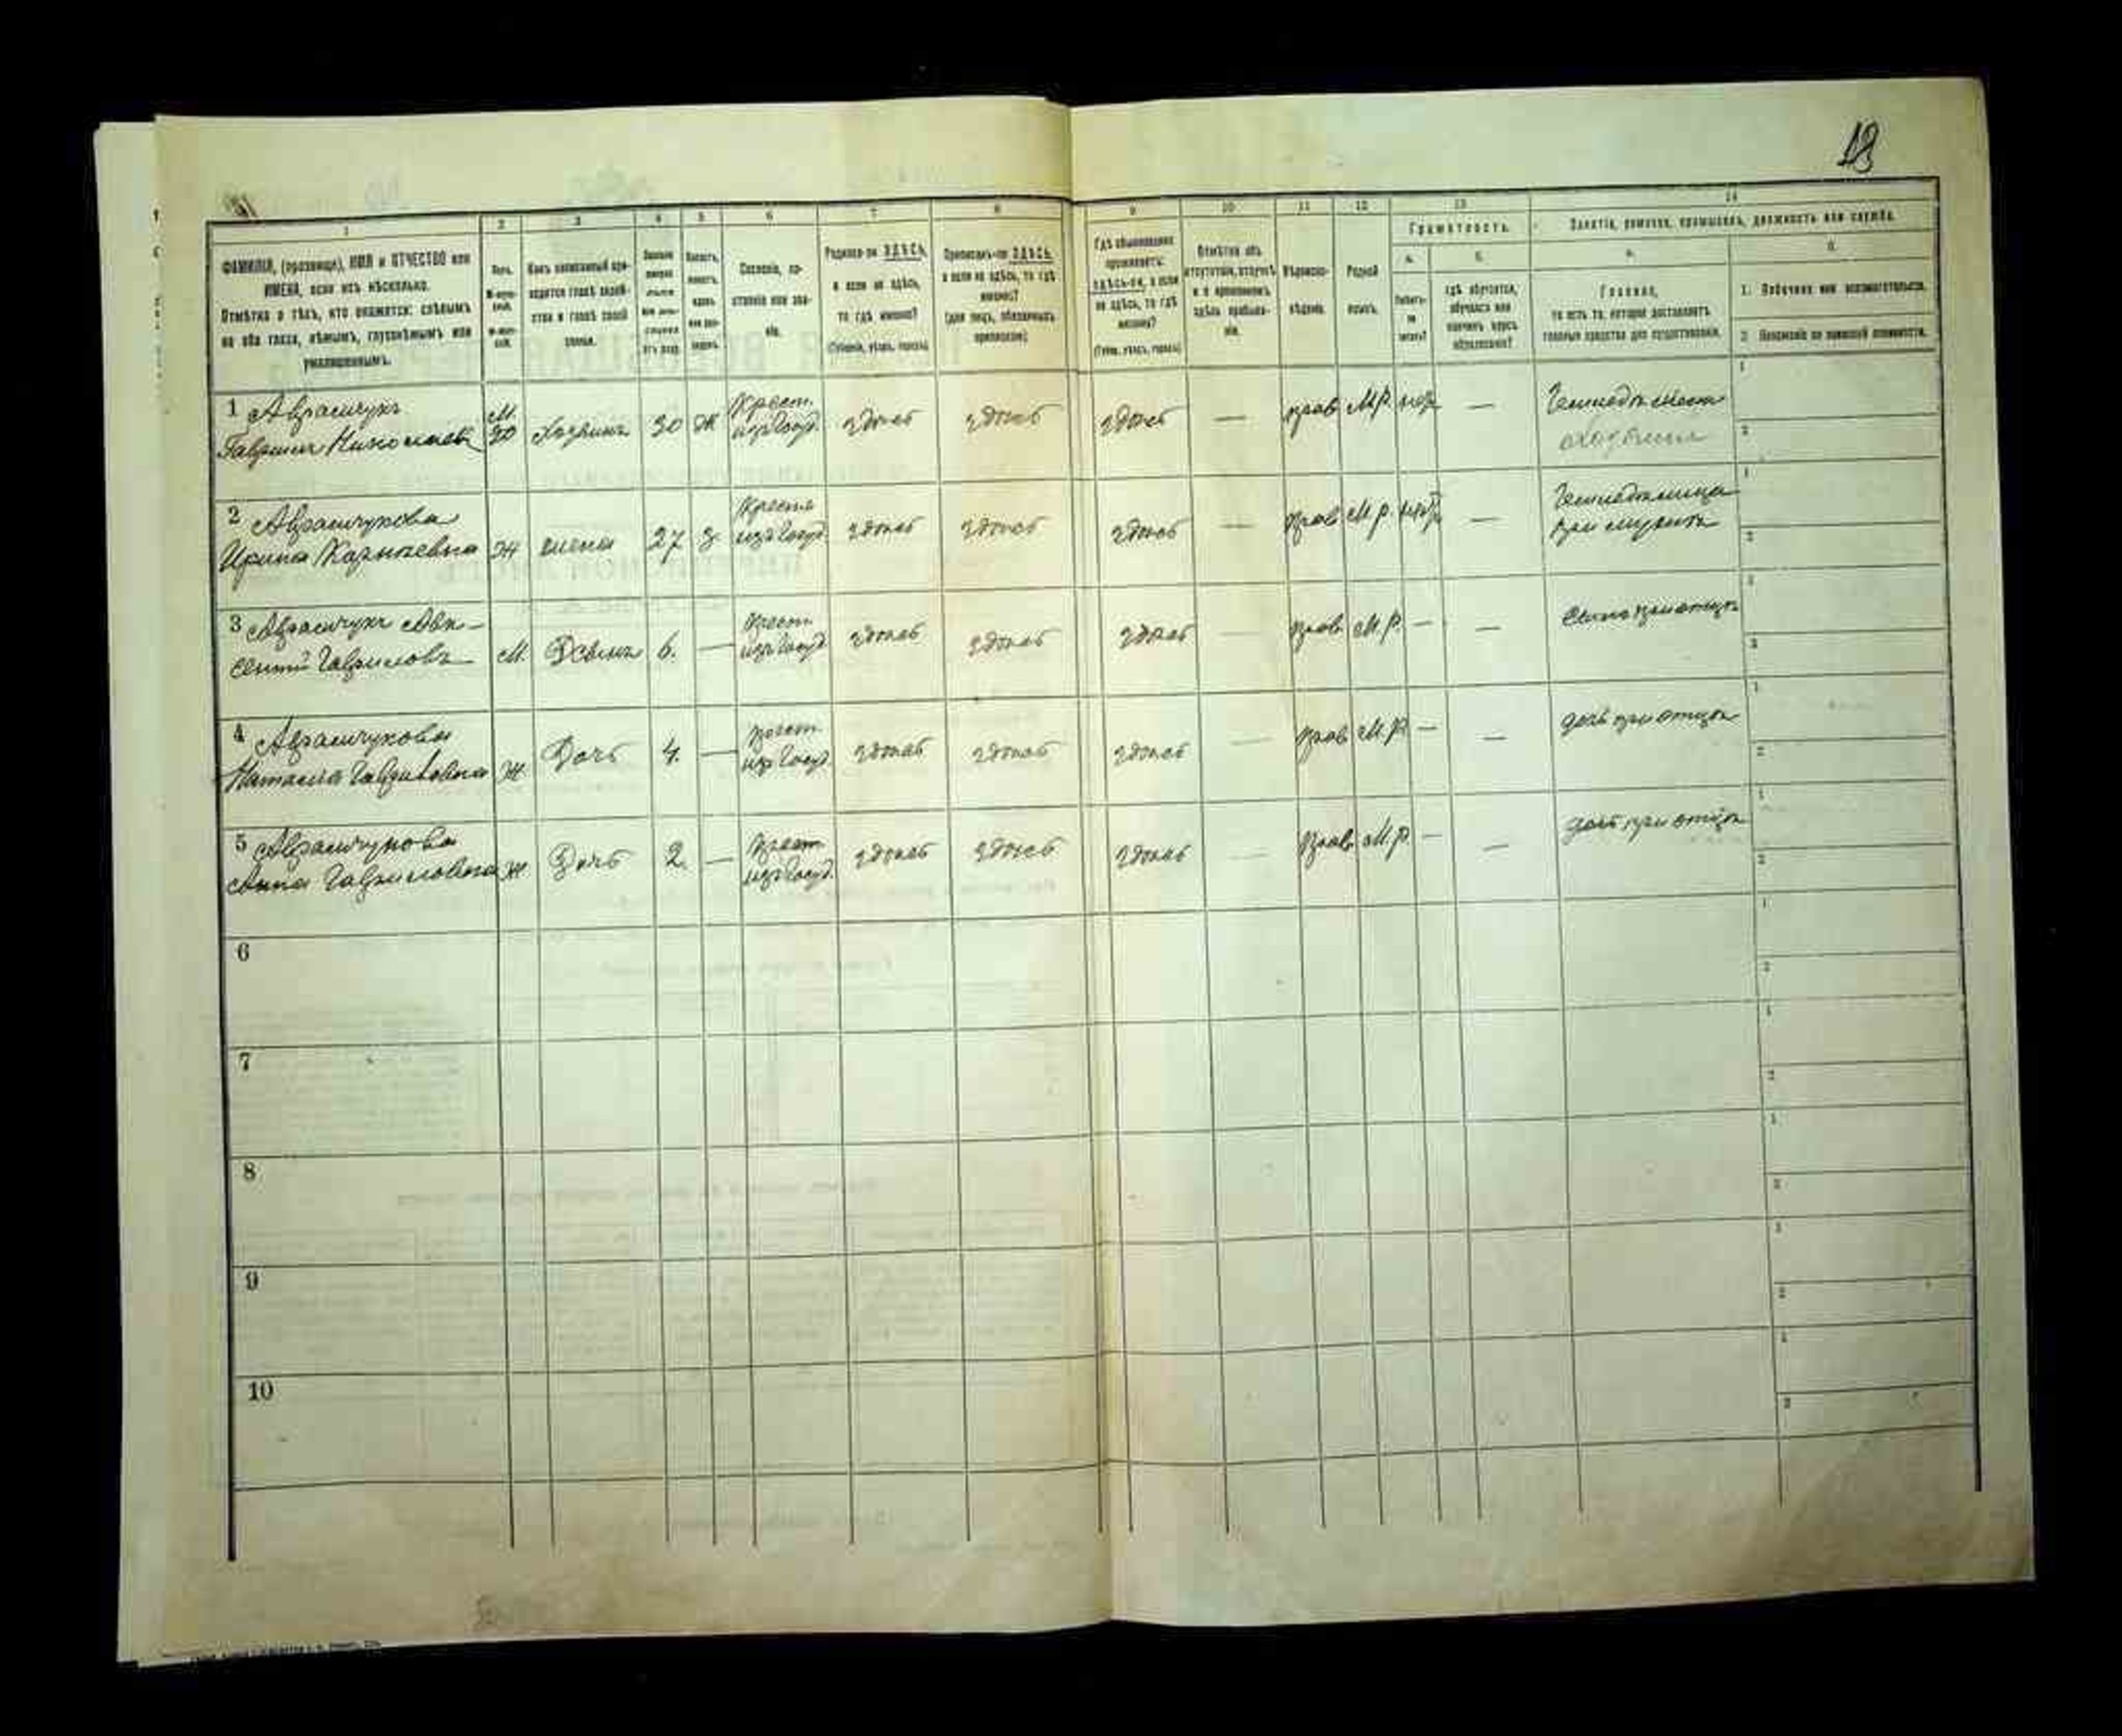 13
1 2 3 4 5 6 7 8 9 10 11 12 13 14
ФАМИЛІЯ, (прозвище), ИМЯ и ОТЧЕСТВО или
ИМЕНА, если ихъ нѣсколько.
Отмѣтка о тѣхъ, кто окажется: слѣпымъ
на оба глаза, нѣмымъ, глухонѣмымъ или
умалишеннымъ.
Полъ.
Какъ записанный при-
ходится главѣ хозяй-
ства и главѣ своей
семьи.
Сословіе, со-
стояніе или зва-
ніе.
Родился-ли ЗДѢСЬ,
а если не здѣсь,
то гдѣ именно?
(Губернія, уѣздъ, городъ)
Приписанъ-ли ЗДѢСЬ,
а если не здѣсь, то гдѣ
именно?
(для лицъ, обязанныхъ
припискою)
Гдѣ обыкновенно
проживаетъ:
здѣсь-ли, а если
не здѣсь, то гдѣ
именно?
(Губер., уѣздъ, городъ)
Отмѣтка объ
отсутствіи, отлучкѣ
и о временномъ
здѣсь пребыва-
ніи.
Вѣроиспо-
вѣданіе.
Родной
языкъ.
Грамотность.
а.
Умѣетъ-
ли
читать?
б.
Гдѣ обучается,
обучался или
кончилъ курсъ
образованія?
Занятіе, ремесло, промыселъ, должность или служба.
а.
Главное,
то есть то, которое доставляетъ
главныя средства для существованія.
б.
1. Побочное или вспомогательное.
2. Положеніе по воинской повинности.
1 Аврамчукъ
Гавриилъ Николаевъ
М. 30 Хозяинъ 30 Ж Крест. изъ Госуд. здѣсь здѣсь здѣсь — прав М.Р. —
2 Аврамчукова
Ирина Карповна
Ж жена 27 З Крестн. изъ Госуд. здѣсь здѣсь здѣсь — прав М.р. —
при мужѣ
3 Аврамчукъ Авк-
сентій Гавриловъ
М. Сынъ 6. — Крест. изъ Госуд здѣсь здѣсь здѣсь — прав. М.Р. — — Сынъ при отцѣ
4 Аврамчукова
Наталія Гавриловна
Ж Дочь 4. — Крест. изъ Госуд. здѣсь здѣсь здѣсь — прав М.Р — — дочь при отцѣ
5 Аврамчукова
Анна Гавриловна
Ж Дочь 2. — Крест изъ Госуд. здѣсь здѣсь здѣсь — Прав. М.р. — — дочь при отцѣ
6
7
8
9
10